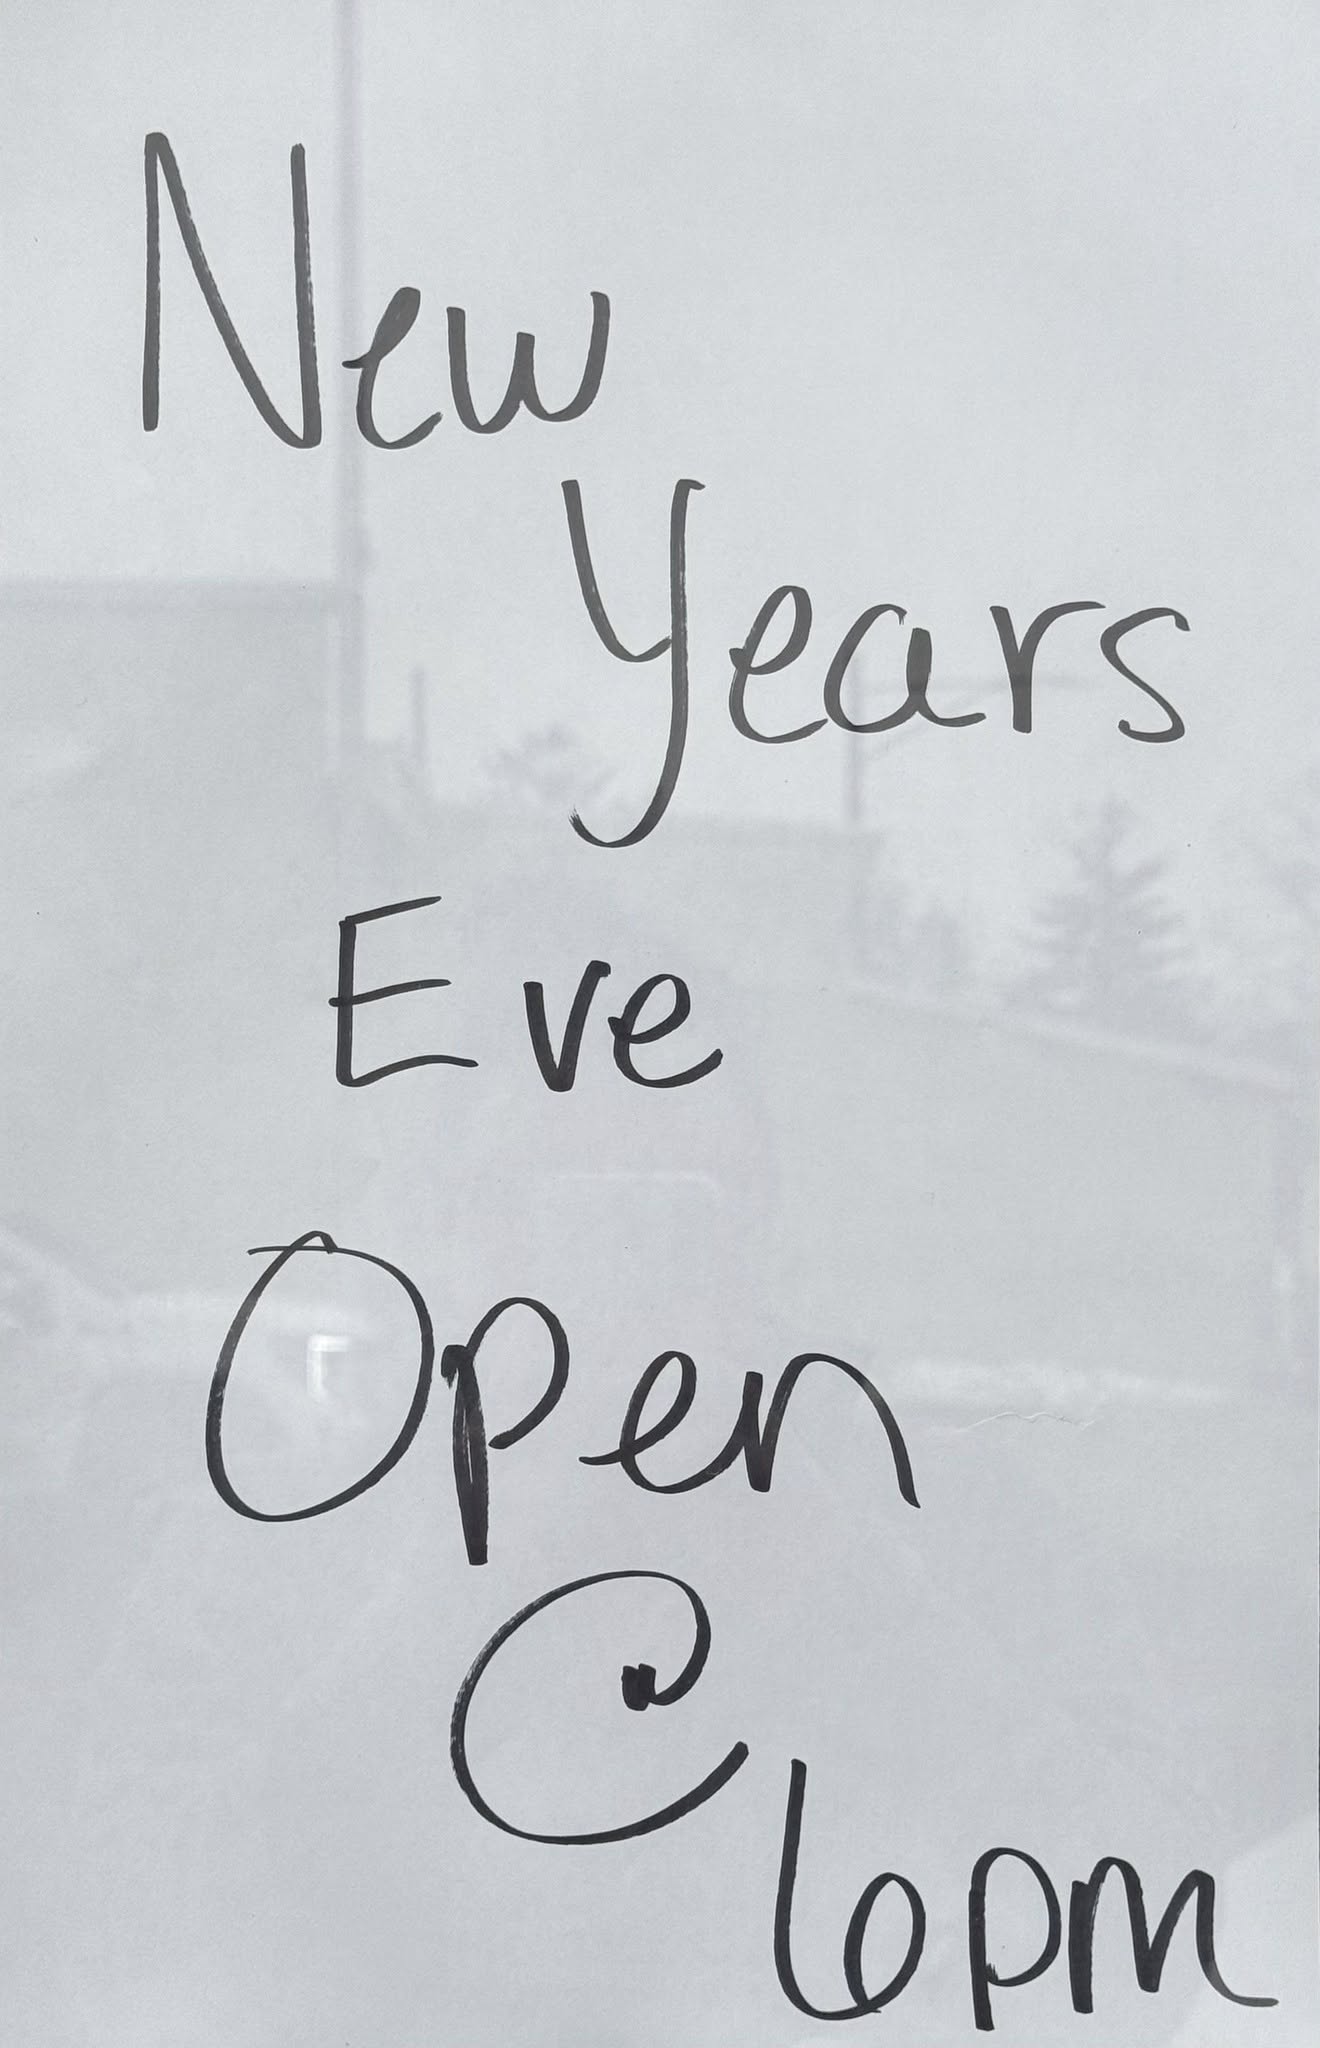 New
Years
Eve
Open
@
6pm